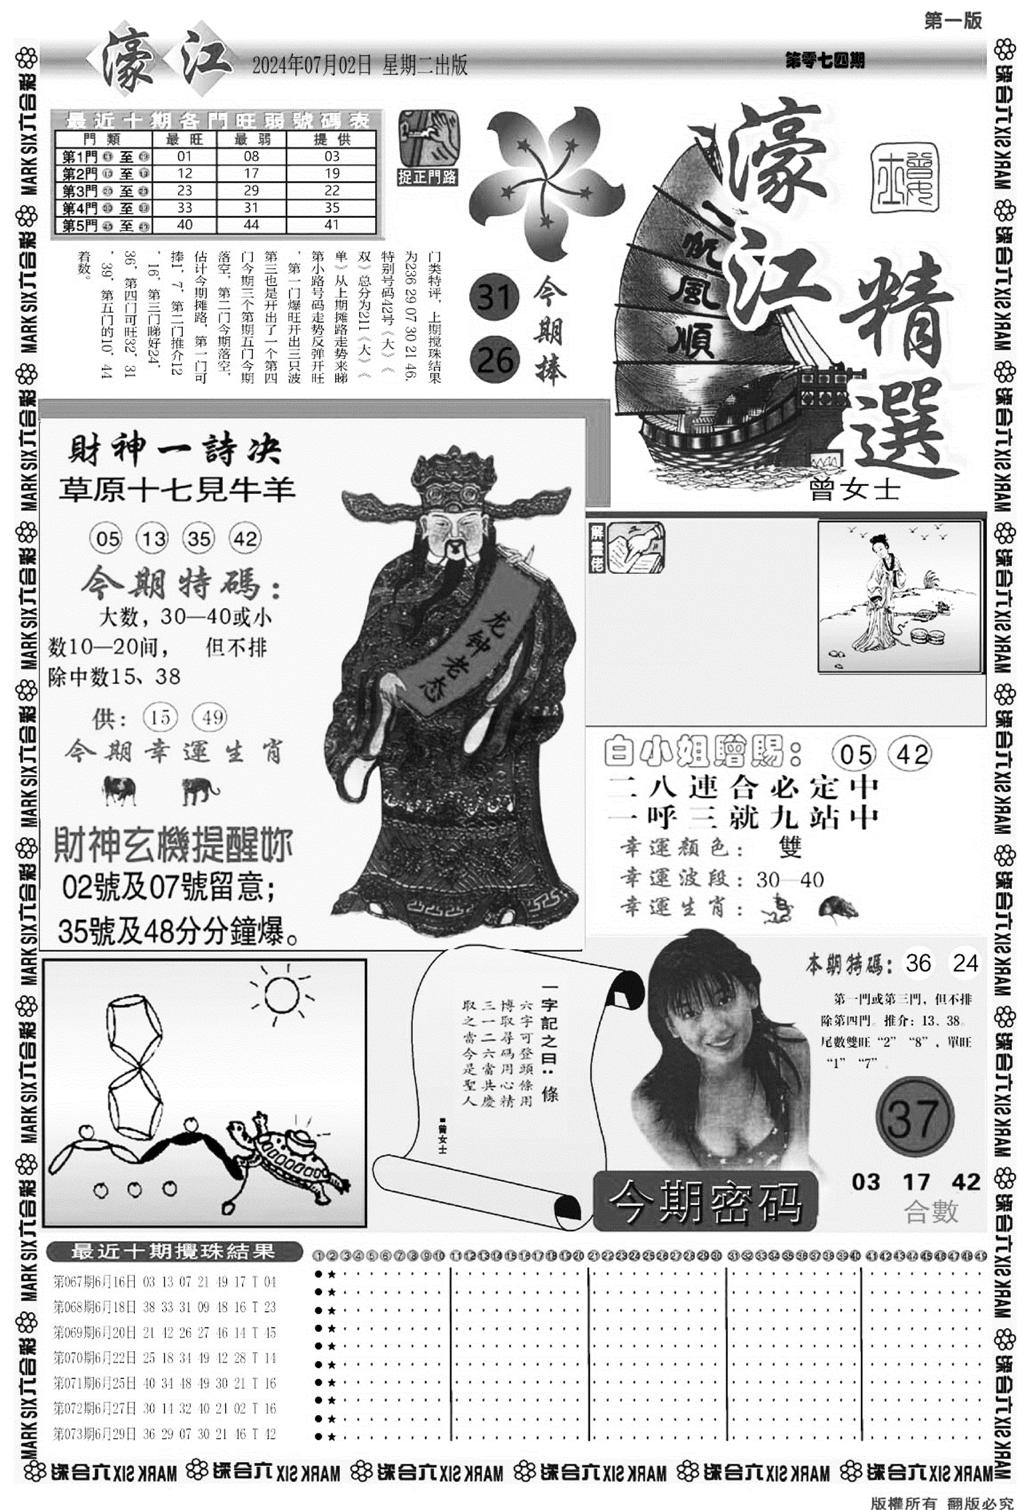 第一版
濠江
2024年07月02日 星期二出版
第零七四期
最近十期各門旺弱號碼表
門類 最旺 最弱 提供
第1門 至 01 08 03
第2門 至 12 17 19
第3門 至 23 29 22
第4門 至 33 31 35
第5門 至 40 44 41
捉正門路
门类特评，上期搅珠结果
为236 29 07 30 21 46.
特别号码42号《大》《
双》总分为211《大》《
单》从上期摊路走势来睇
第小路号码走势反弹开旺
，第一门爆旺开出三只波
第三也是开出了一个第四
门今期三个第期五门今期
落空，第二门今期落空，
估计今期摊路，第一门可
捧1，7，第二门推介12
，16，第三门睇好24，
36，第四门可旺32，31
，39，第五门的10，44
着数。
31
26
今期捧
一帆風順
濠江
精選
曾女士
財神一詩决
草原十七見牛羊
05 13 35 42
今期特碼：
大数，30—40或小
数10—20间， 但不排
除中数15、38
供：15 49
今期幸運生肖
財神玄機提醒妳
02號及07號留意；
35號及48分分鐘爆。
龙钟老态
解畫佬
白小姐贈賜：05 42
二八連合必定中
一呼三就九站中
幸運顏色： 雙
幸運波段：30—40
幸運生肖：
一字記之曰：條
六字可登頭條用
博取尋碼用心精
三一二六當共慶
取之當今是聖人
■曾女士
本期特碼：36 24
第一門或第三門，但不排
除第四門。推介：13、38。
尾數雙旺“2” “8”，單旺
“1” “7”。
37
03 17 42
合數
今期密码
最近十期攪珠結果
①②③④⑤⑥⑦⑧⑨⑩⑪⑫⑬⑭⑮⑯⑰⑱⑲⑳㉑㉒㉓㉔㉕㉖㉗㉘㉙㉚㉛㉜㉝㉞㉟㊱㊲㊳㊴㊵㊶㊷㊸㊹㊺㊻㊼㊽㊾
第067期6月16日 03 13 07 21 49 17 T 04
第068期6月18日 38 33 31 09 48 16 T 23
第069期6月20日 21 42 26 27 46 14 T 45
第070期6月22日 25 18 34 49 42 28 T 14
第071期6月25日 40 34 48 49 30 21 T 16
第072期6月27日 30 14 32 40 21 02 T 16
第073期6月29日 36 29 07 30 21 46 T 42
MARK SIX六合彩
版權所有 翻版必究